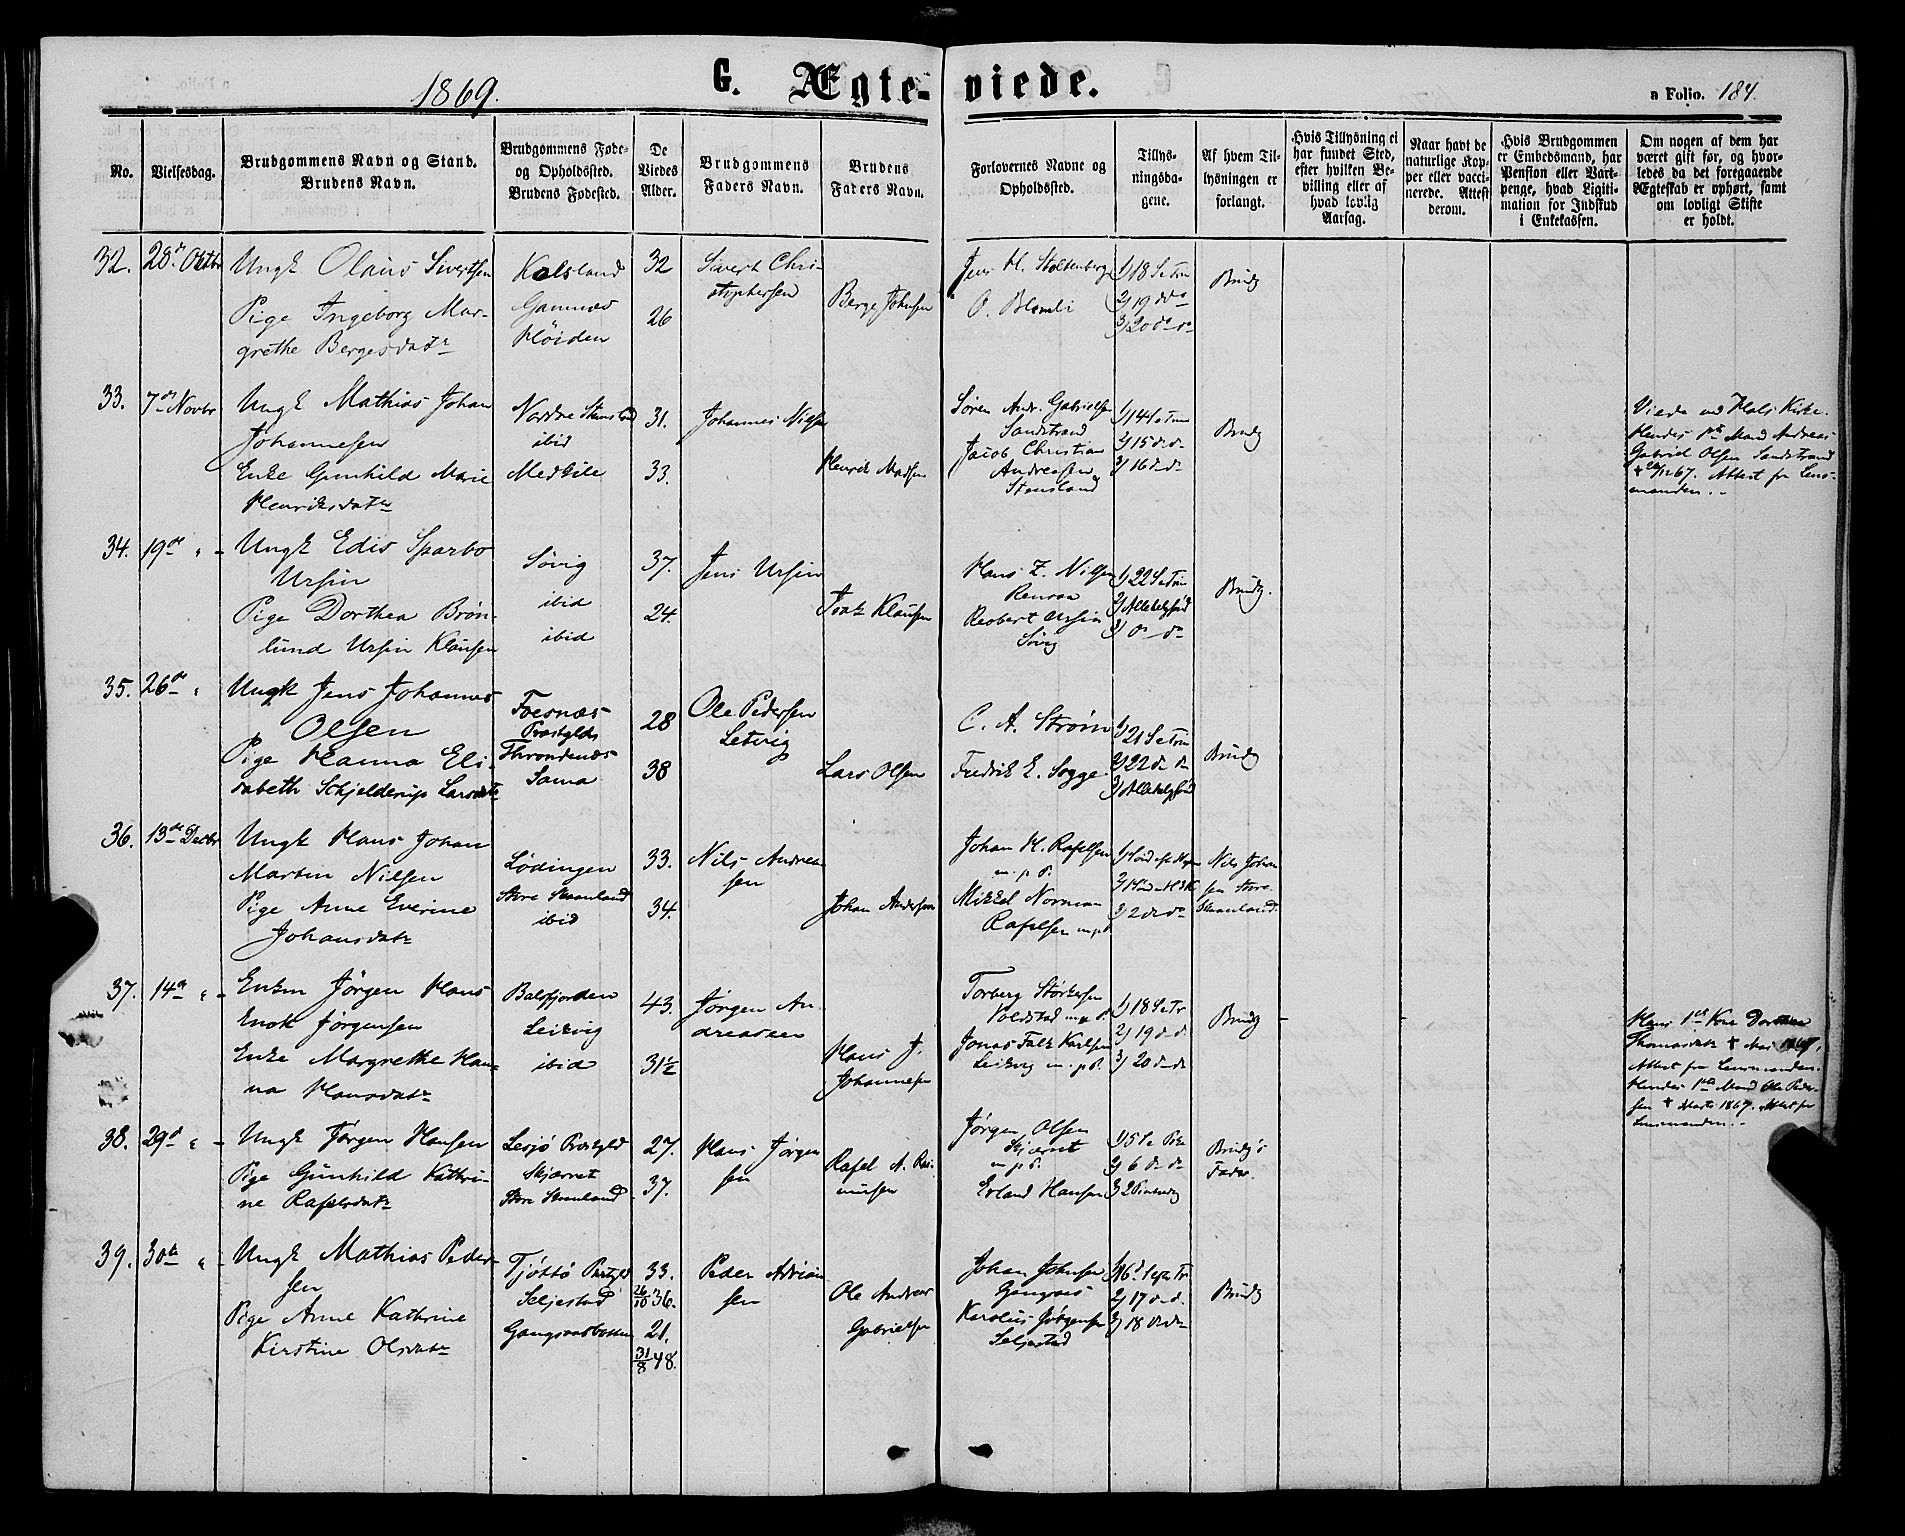 1869.
G. Ægte-viede.
a Folio. 184.
No.
Vielsesdag.
Brudgommens Navn og Stand.
Brudens Navn.
Brudgommens Føde-
og Opholdssted.
Brudens Fødested.
De
Viedes
Alder.
Brudgommens
Faders Navn.
Brudens
Faders Navn.
Forlovernes Navne og
Opholdssted.
Tillys-
ningsda-
gene.
Af hvem Til-
lysningen er
forlangt.
Hvis Tillysning ei
har fundet Sted,
efter hvilken Be-
villing eller af
hvad lovlig
Aarsag.
Naar havt de
naturlige Kop-
per eller vacci-
nerede. Attest
derom.
Hvis Brudgommen
er Embedsmand, har
Pension eller Vart-
penge, hvad Legiti-
mation for Indskud
i Enkekassen.
Om nogen af dem har
været gift før, og hvor-
ledes da det foregaaende
Ægteskab er ophørt, samt
om lovligt Skifte
er holdt.
32. 28d Oktbr
Ungk Olaus Sivertsen
Pige Ingeborg Mar-
grethe Bergesdatr
Kalsland
Gamnes
Høiden
32
26
Sivert Chri-
stophersen
Berge Johnsen
Jens H. Stoltenberg
O. Blomli
1) 18 S e Trin
2) 19 do do
3) 20 do do
Brudg
33. 7de Novbr
Ungk Mathias Johan
Johannesen
Enke Gunhild Marie
Henriksdatr
Nordre Stensland
ibid
Medkile
31.
33.
Johannes Nilsen
Henrik Madsen
Søren Andr. Gabrielsen
Sandstrand
Jacob Christian
Andreasen
Stensland
1) 14 S e Trin
2) 15 d d
3) 16 d d
Brudg
Viede ved Hols Kirke.
Hendes 1ste Mand Andreas
Gabriel Olsen Sandstrand
67. Attest fr Lens-
manden.
34. 19de "
Ungk Edis Sparbo
Ursin
Pige Dorthea Brøn-
lund Ursin Klausen
Søvig
ibid
ibid
37.
24.
Jens Ursin
Klausen
Hans Z. Nilsen
Rensaa
Robert Ursin
Søvig
1) 22 S e Trin
2) Allehelgsønd
3) d d
Brudg.
35. 26de "
Ungk Jens Johannes
Olsen
Pige Hanna Eli-
sabeth Schjelderup Larsdatr
Foesnæs
Præstgld
Throndenæs
Sama
28
38
Ole Pedersen
Setvig
Lars Olsen
C. A. Strøm
Fredrik E. Sogge
1) 21 S e Trin
2) 22 d d
3) Allehelgsønd
Brudg
36. 13de Decbr
Ungk Hans Johan
Martin Nilsen
Pige Anne Everine
Johansdatr
Lødingen
Store Skaanland
ibid
33.
34.
Nils Andrea
sen
Johan Andersen
Johan H. Rafelsen
m. p. P.
Mikkel Norman
Rafelsen m.p.P.
3) 2 d d
Nils Johan
sen Store
Skaanland
37. 14de "
Enkm Jørgen Hans
Enok Jørgensen
Enke Margrethe Han-
na Hansdatr
Balsfjorden
Leikvig
ibid
43.
31½
Jørgen An
dreassen
Hans J.
Johannesen
Torberg Størkersen
Voldstad m.p.P.
Jonas Falk Karlsen
Leikvig m.p.P.
1) 18 S e Tr
2) 19 d d
3) 20 d d
Brudg
Hans 1ste Kone Dorthea
Thomasdatr † Mai 1867,
Attest fra Lensmanden.
Hendes 1ste Mand Ole Peder-
sen † Marts 1867. Attest fr
Lensmanden.
38. 29d "
Ungk Jørgen Hansen
Pige Gunhild Kathri-
ne Rafelsdatr
Lesjø Præstgld
Skjærvet
Store Skaanland
27.
37.
Hans Jørgen
sen
Rafel A. Ras-
mussen
Jørgen Olsen
Skjærvet
m.p.P.
Erland Hansen
2) 6 d d
Brudg's
Fader.
39. 30te "
Ungk Mathias Peder-
sen
Pige Anne Kathrine
Kirstine Olsdatr
Tjøttø Præstgld
Seljestad
Gangsaasbotten
33.
26/10 36.
21.
31/8 48.
Peder Adrian
sen
Ole Andreas
Gabrielsen
Johan Johnsen
Gangsaas
Karolius Jørgensen
Seljestad
1) 16d S e p Tr
2) 17 d d
3) 18 d d
Brudg